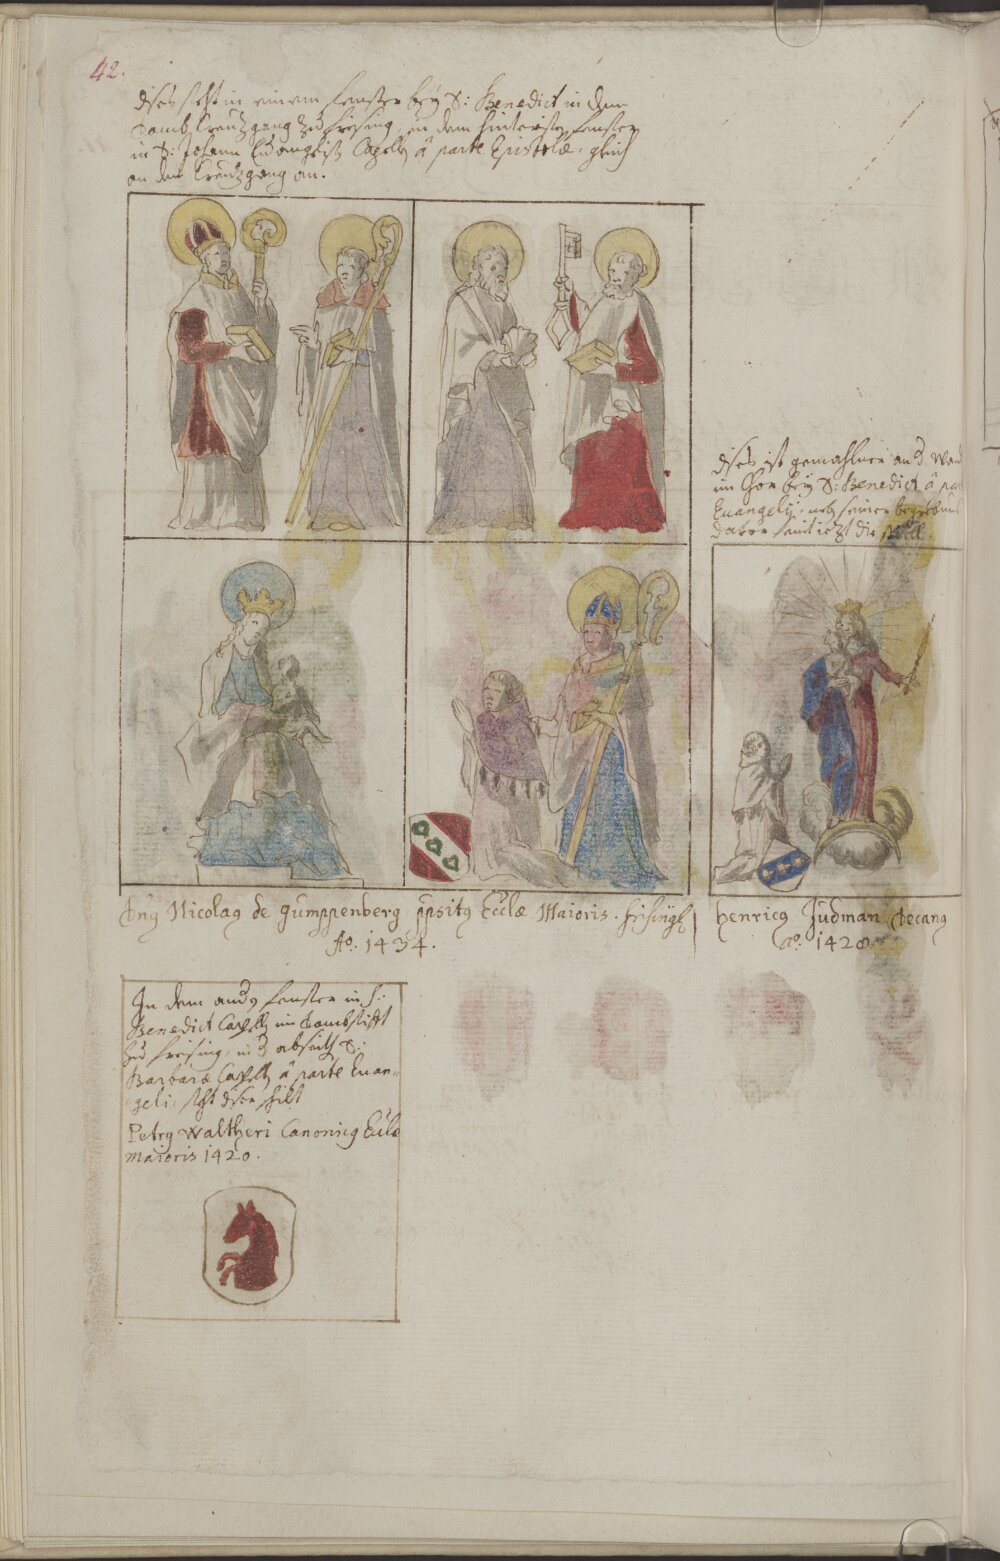 42.
dises steht in einem fenster bey S: Benedict in dem
Domb Creutzgang zu freising, in dem hintersten fenster
in S: Johann Euangelist Capeln â parte Epistolæ, gleich
an dem Creutzgang an.
dises ist gemahlner an d Wand
im Chor bey S: Benedict â pa
Euangelij, neb seiner begrebnus
darvor seint ietzt die stüell.
Dn9 Nicolag de gumppenberg. ppsitg Ecclæ Maioris. frisingē
Ao. 1434.
henricg Judman Decang
Ao. 1420
In dem andn fenster in S:
Benedict Capeln im Dombstifft
zu freising, in d abseith S:
Barbaræ Capeln â parte Euan-
geli, steht diser schilt
Petrg Waltheri Canonicg Eccle
maioris 1420.